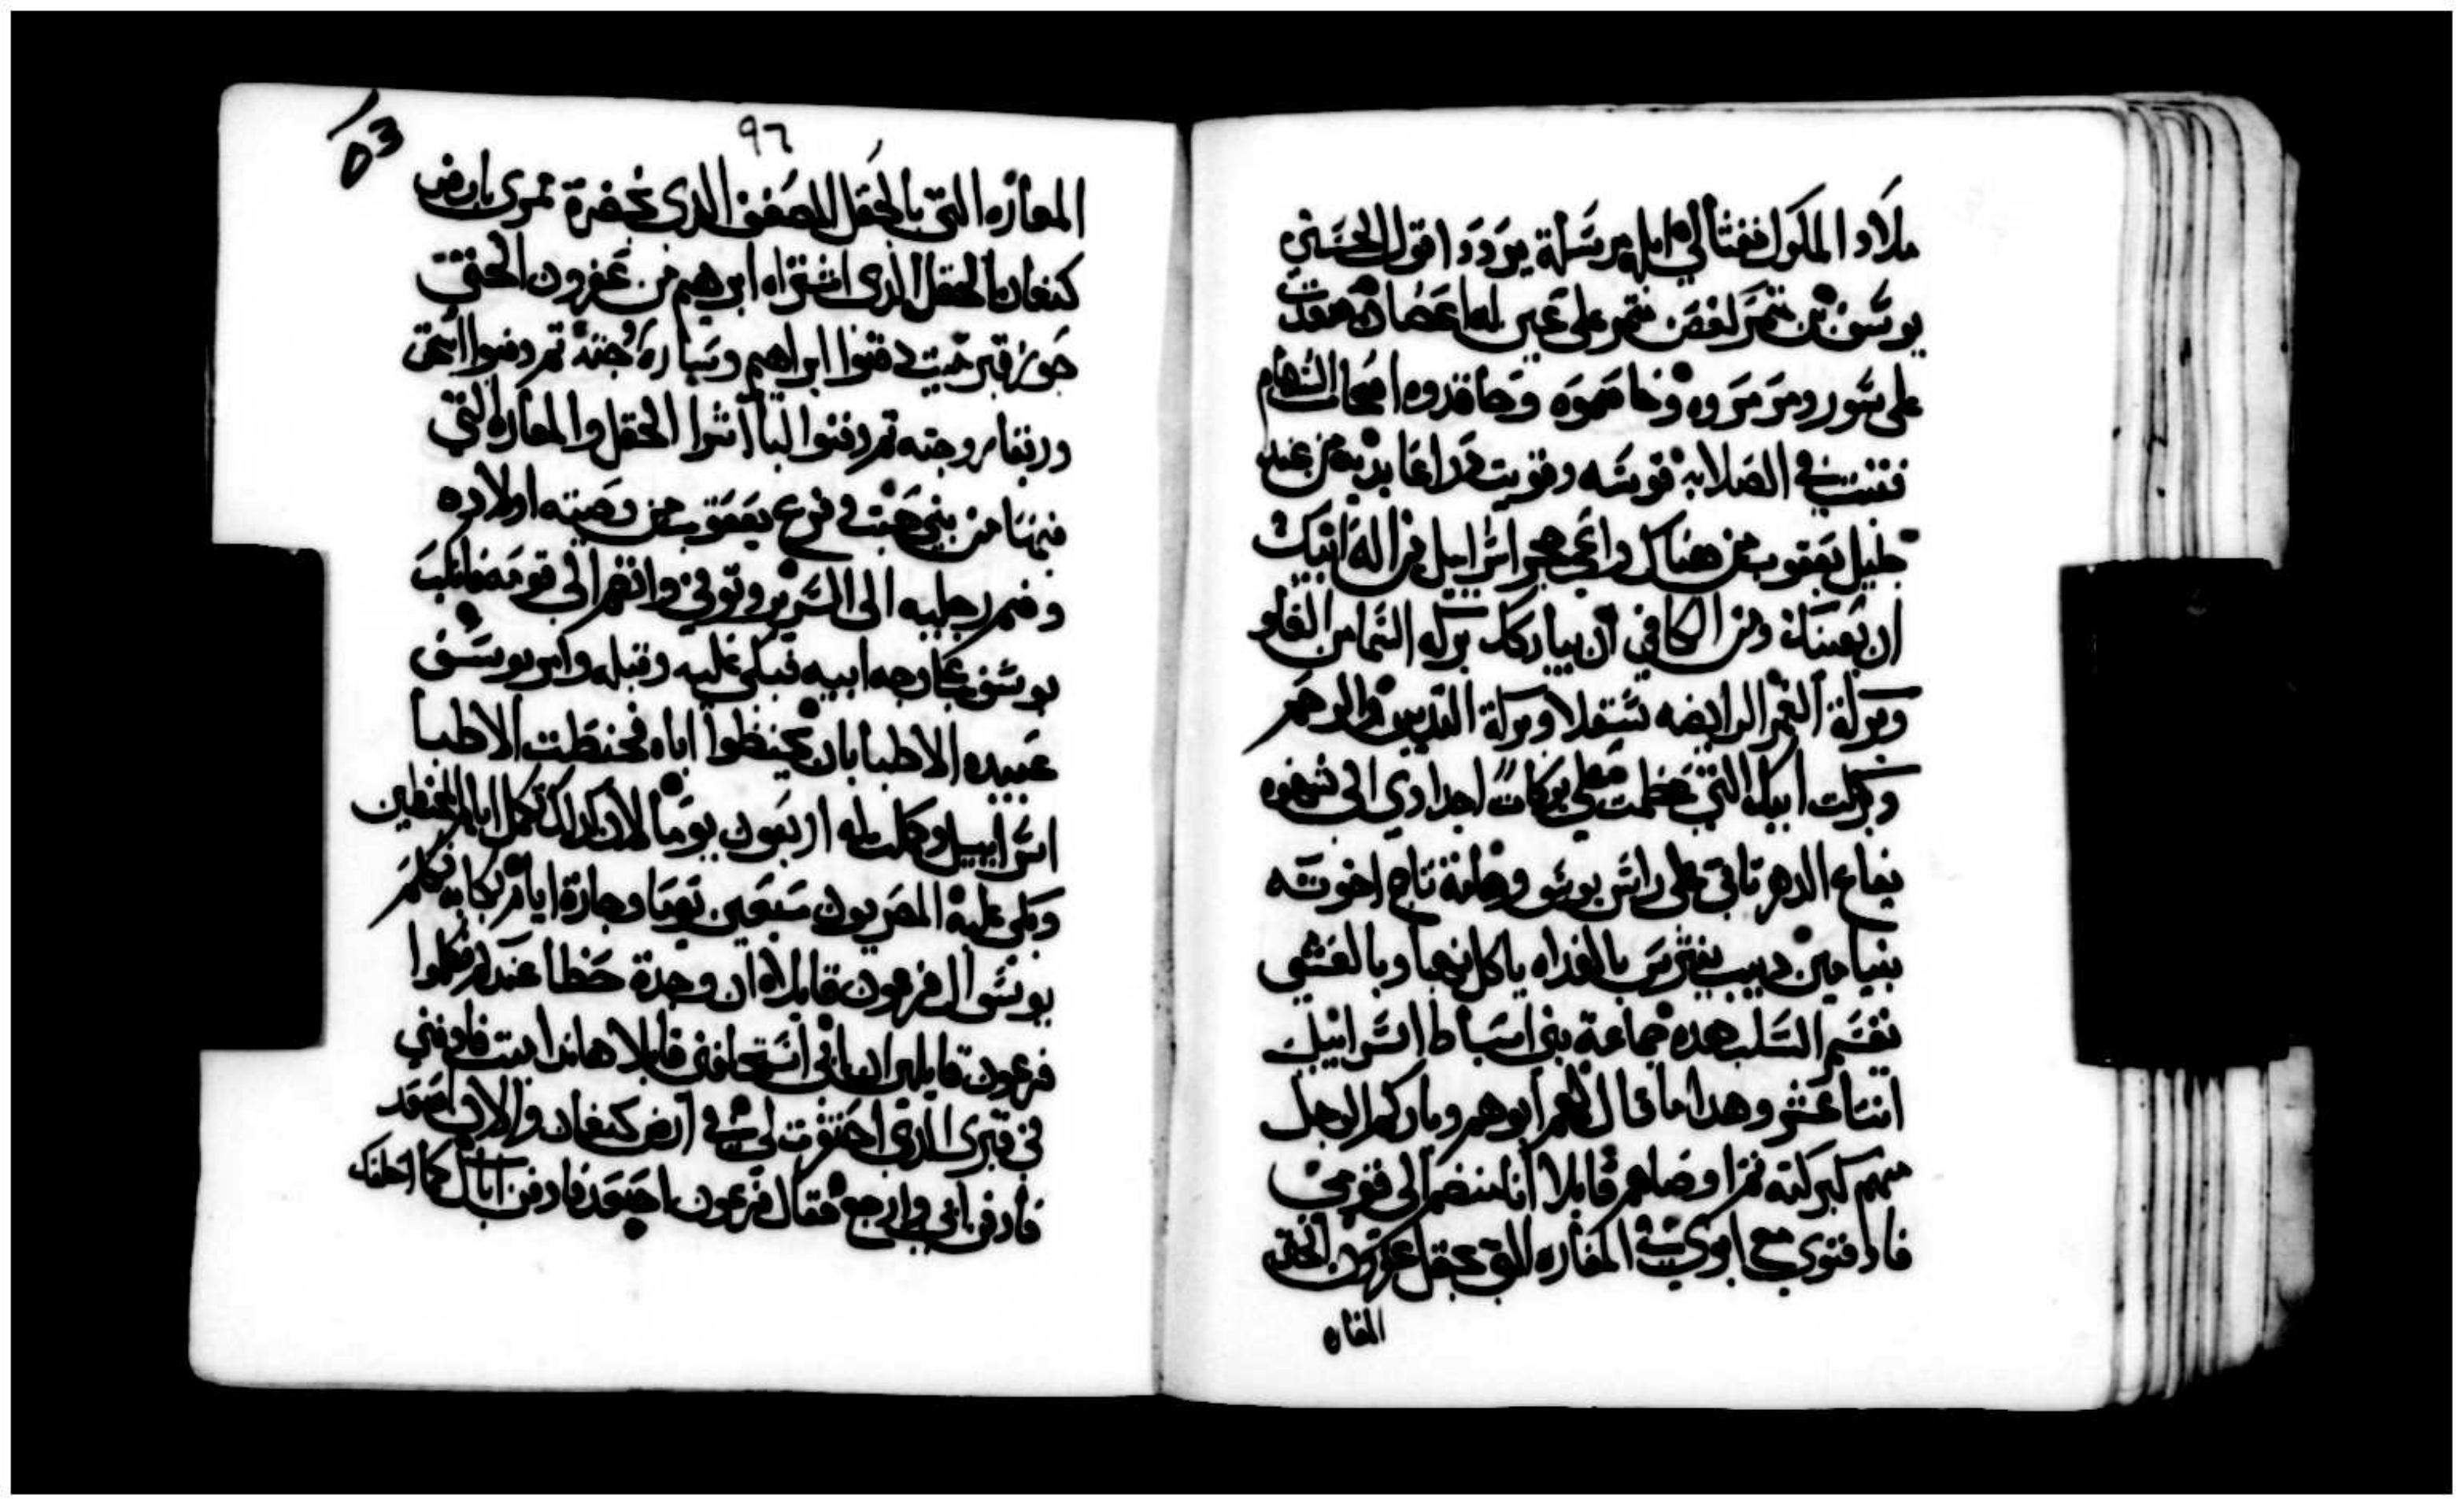 ملاد الملكول نفثالي ايله مرسلة يردد اقول الحسني
يوسف بن مثمر لغصن مثمر على عين له اغصان صعدت
على سور ومرمروه وخاصموه وحاقدوه اصحاب السهام
فثبتت في الصلابة قوسه وقويت دراعا يديه من عند
جليل يعقوب من هناك راعي حجر اسراييل من اله ابيك
ان يعينك ومن الكافي ان يباركك بركه السما من العلو
وبركة الغمر الرابضه تسفلا وبركة التديين والرحم
وبركت ابيك التي عظمت على بركات اجدادي الى شهوه
يفاع الدهر تاتي على راس يوسف وهامة تاج اخوته
بنيامين ديب يفترس بالغداه ياكل نهبا وبالعشي
تقسم السلب هده جماعة بني اسباط اسراييل
اتنا عشر وهدا ما قال لهم ابوهم وباركهم الرجل
منهم كبركته تم اوصاهم قايلا انا منضم الى قومي
فادفنوي مع ابوي في المغاره التي بحقل عفرون الحتي
المغاره
٩٦
المغاره التي بالحقل المضعف الدي بحضرة ممرى بارض
كنعان بالحقل الدي اشتراه ابرهيم من عفرون الحتي
حوز قبر حيت دفنوا ابراهيم وساره زوجته تم دفنوا اسحق
وربقا زوجته تم دفنوا ليا اشرا الحقل والمغاره التي
فيها من بني حت وفرغ يعقوب من وصيته اولاده
وضم رجليه الى السرير وتوفي وانضم الى قومه فانكب
يوسف على وجه ابيه فبكى عليه وقبله وامر يوسف
عبيده الاطبا بان يحنطوا اباه فحنطت الاطبا
اسراييل وكملت له اربعون يوما لان كدلك تكمل ايام المحنطين
وبكى عليه المصريون سبعين يوما وجازة ايام بكايه فكلم
يوسف ال فرعون قايلا ان وجدة حظا عندكم فكلموا
فرعون قايلين ان ابي استحلفني قايلا هاندا ميت فادفني
في قبري الدي احتفرت لي في ارض كنعان والان اصعد
فادفن ابي وارجع فقال فرعون اصعد فادفن اباك كما احلفك